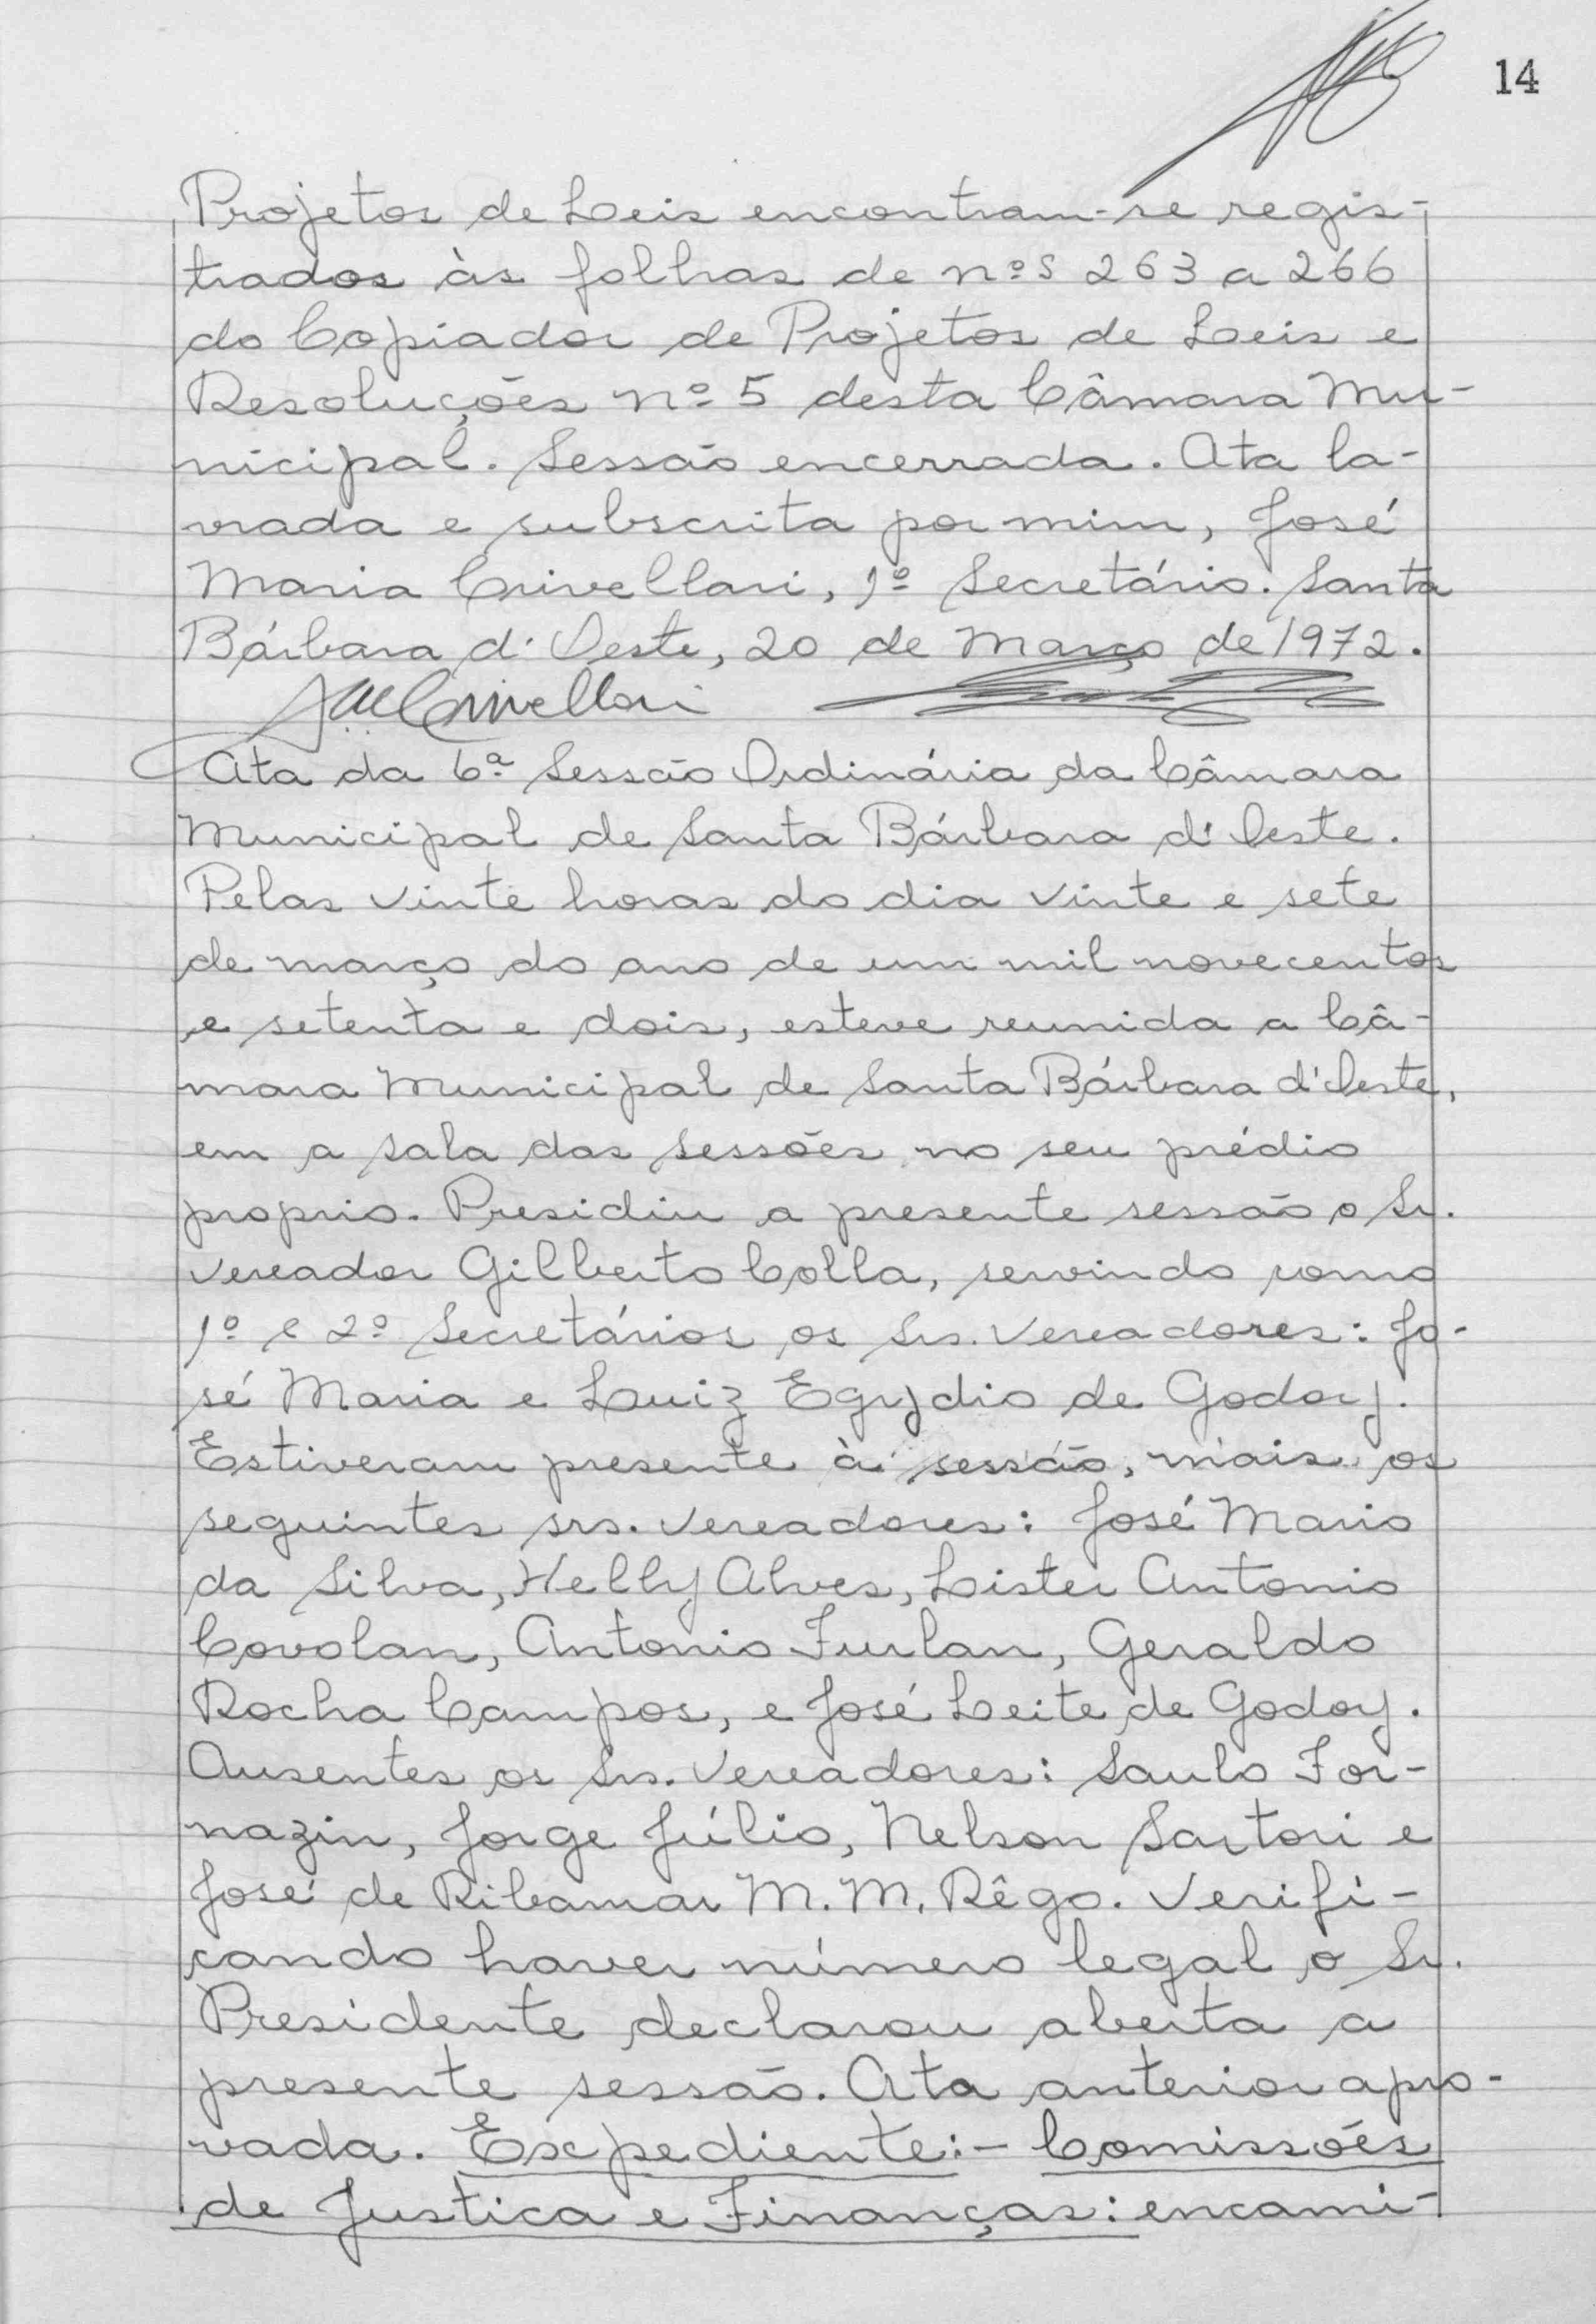 14
Projetos de Leis encontram-se regis-
trados às folhas de nºs 263 a 266
do Copiador de Projetos de Leis e
Resoluções nº 5 desta Câmara Mu-
nicipal. Sessão encerrada. Ata la-
vrada e subscrita por mim, José
Maria Crivellari, 1º Secretário. Santa
Bárbara d'Oeste, 20 de Março de 1972.
Crivellari
Ata da 6ª Sessão Ordinária da Câmara
Municipal de Santa Bárbara d'Oeste.
Pelas vinte horas do dia vinte e sete
de março do ano de um mil novecentos
e setenta e dois, esteve reunida a Câ-
mara Municipal de Santa Bárbara d'Oeste,
em a sala das sessões no seu prédio
proprio. Presidiu a presente sessão o Sr.
Vereador Gilberto Colla, servindo como
1º e 2º Secretários os Srs. Vereadores: Jo-
sé Maria e Luiz Egydio de Godoy.
Estiveram presente à sessão, mais os
seguintes srs. Vereadores: José Mario
da Silva, Helly Alves, Lister Antonio
Covolan, Antonio Furlan, Geraldo
Rocha Campos, e José Leite de Godoy.
Ausentes os Srs. Vereadores: Saulo For-
nazin, Jorge Júlio, Nelson Sartori e
José de Ribamar M. M. Rêgo. Verifi-
cando haver número legal o Sr.
Presidente declarou aberta a
presente sessão. Ata anterior apro-
vada. Expediente:- Comissões
de Justica e Finanças: encami-